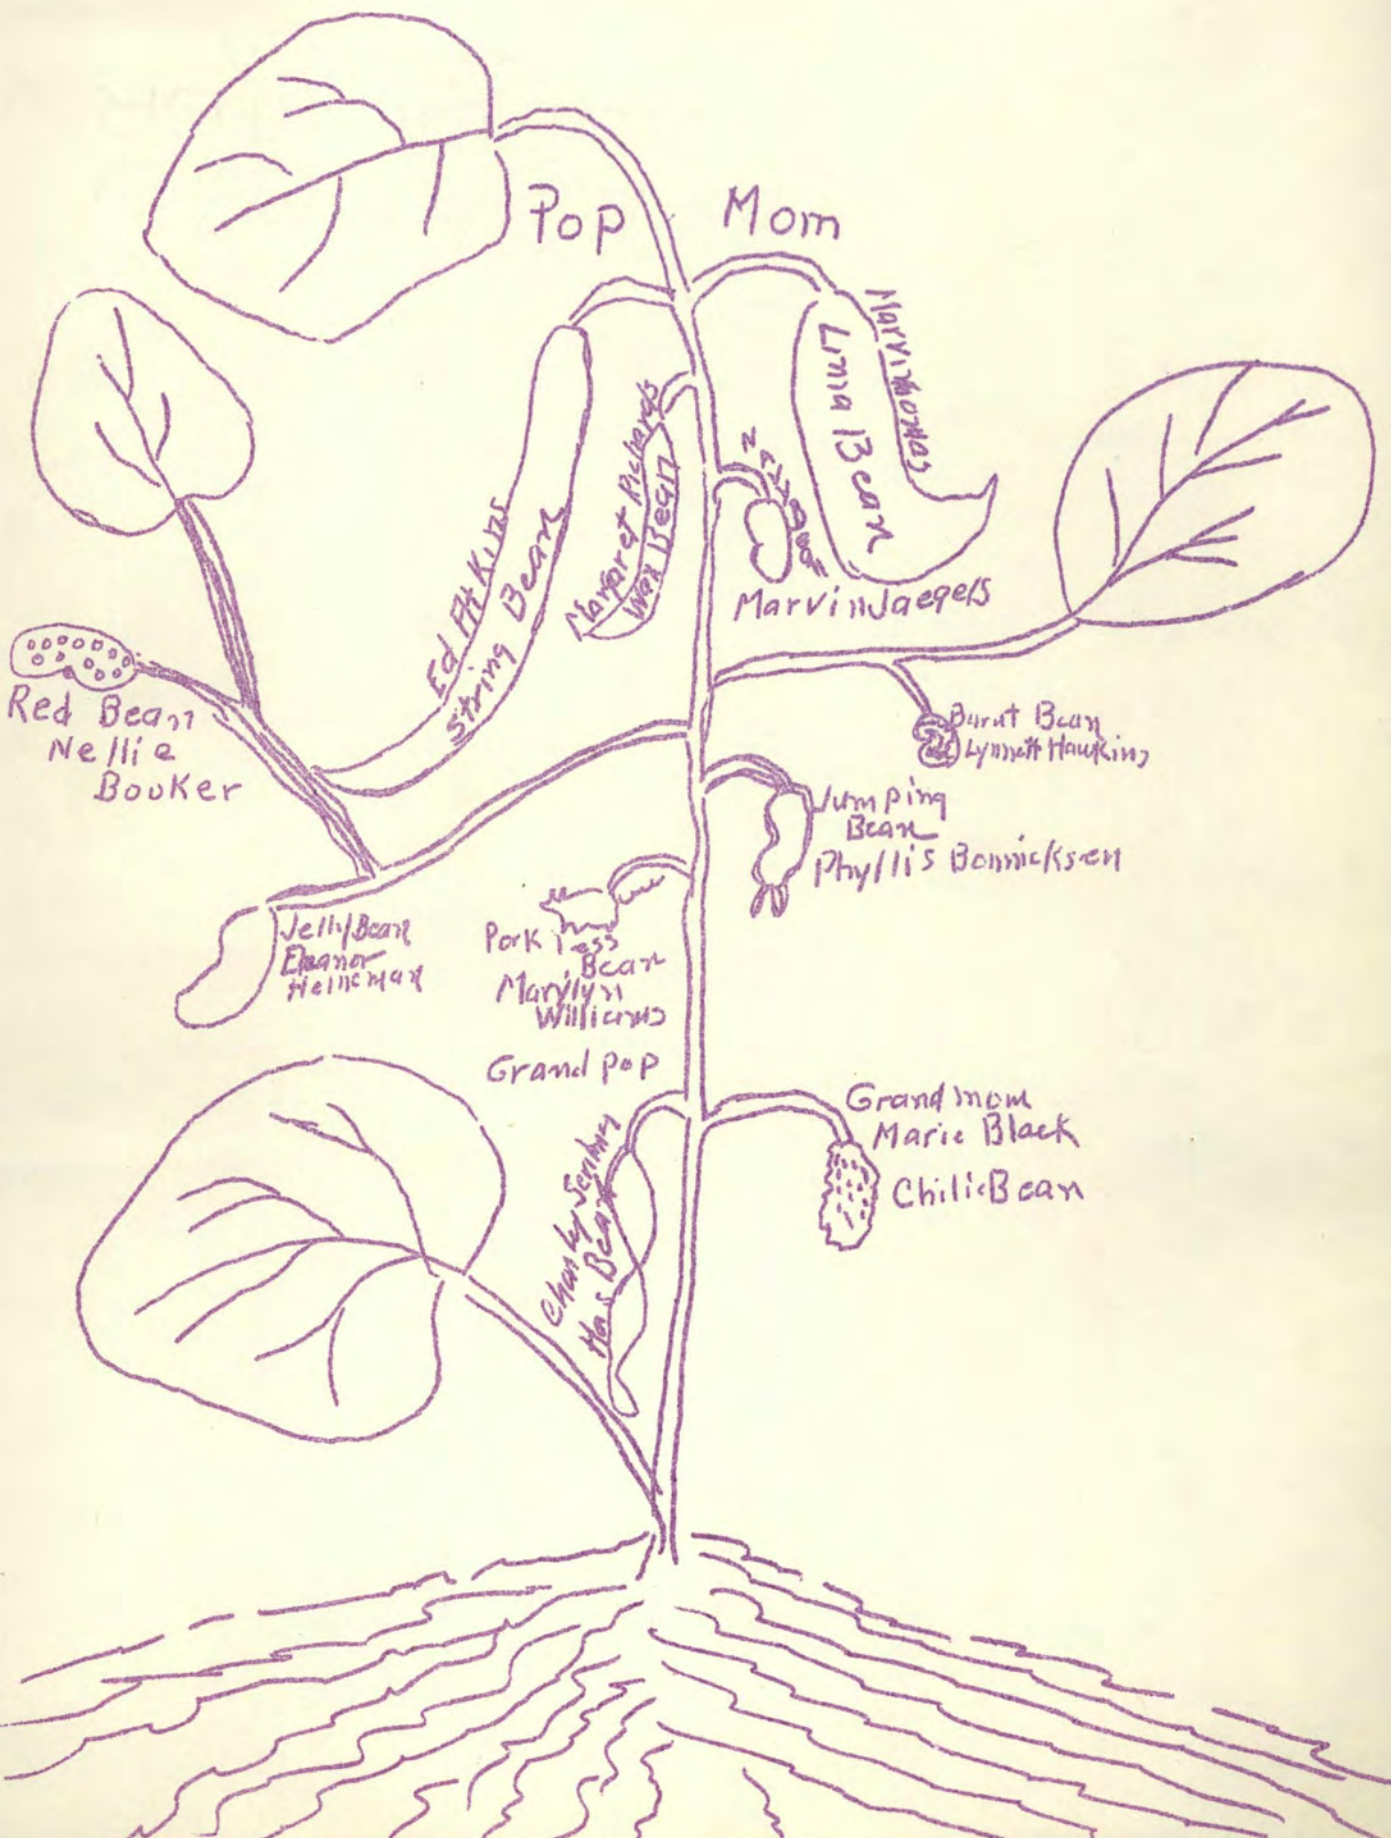 Pop
Mom
Lima Bean
Ed Atkins
String Bean
Margaret Richards
Wax Bean
Marvin Jaegers
Red Bean
Nellie
Booker
Burnt Bean
Lynnett Hawkins
Jumping
Bean
Phyllis Bonnicksen
Jelly Bean
Eleanor
Heineman
Porkless
Bean
Marylyn
Williams
Grand pop
Grand mom
Marie Black
Chili Bean
Has Bean